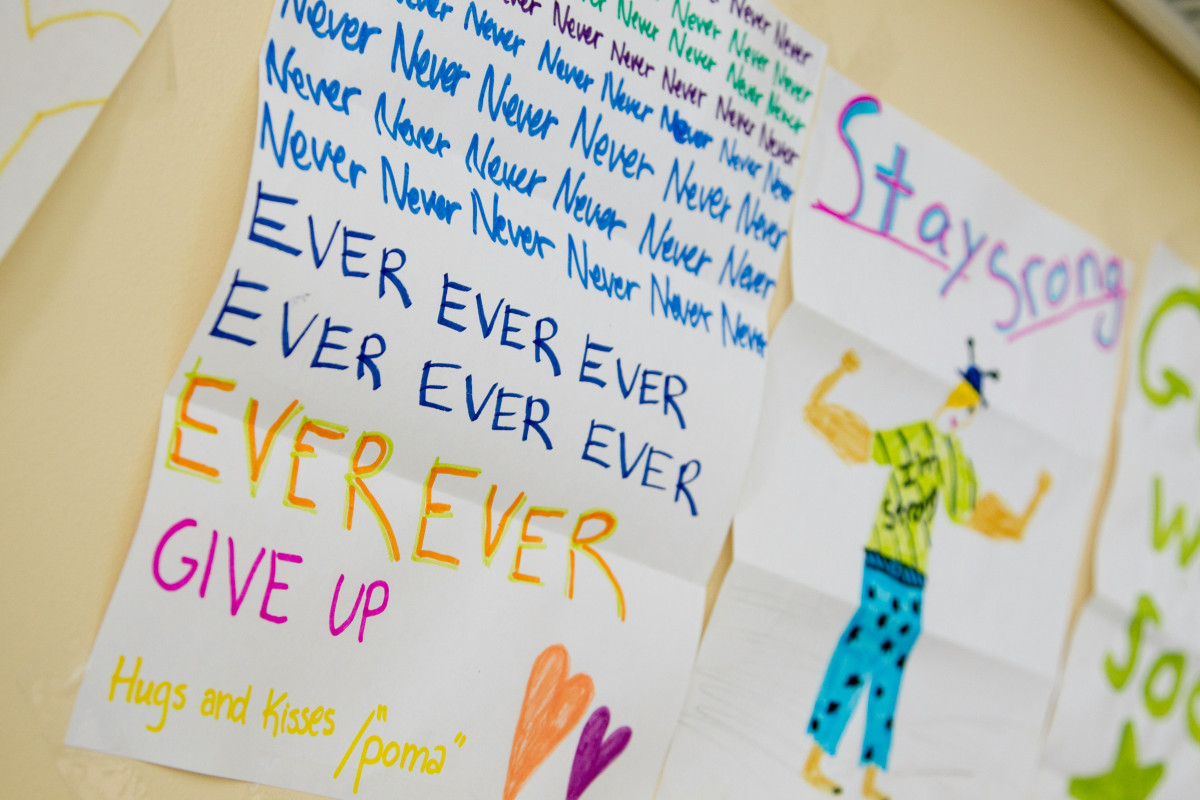 Never Never
Never Never Never
Never Never Never Never
Never Never Never Never Never Never
Never Never Never Never Never Never Never
Never Never Never Never Never Never
Never Never Never Never Never Never
Never Never Never Never Never Never
EVER EVER EVER
EVER EVER EVER
EVER EVER
GIVE UP
Hugs and Kisses /"poma"
Stay Srong
I'm
strong